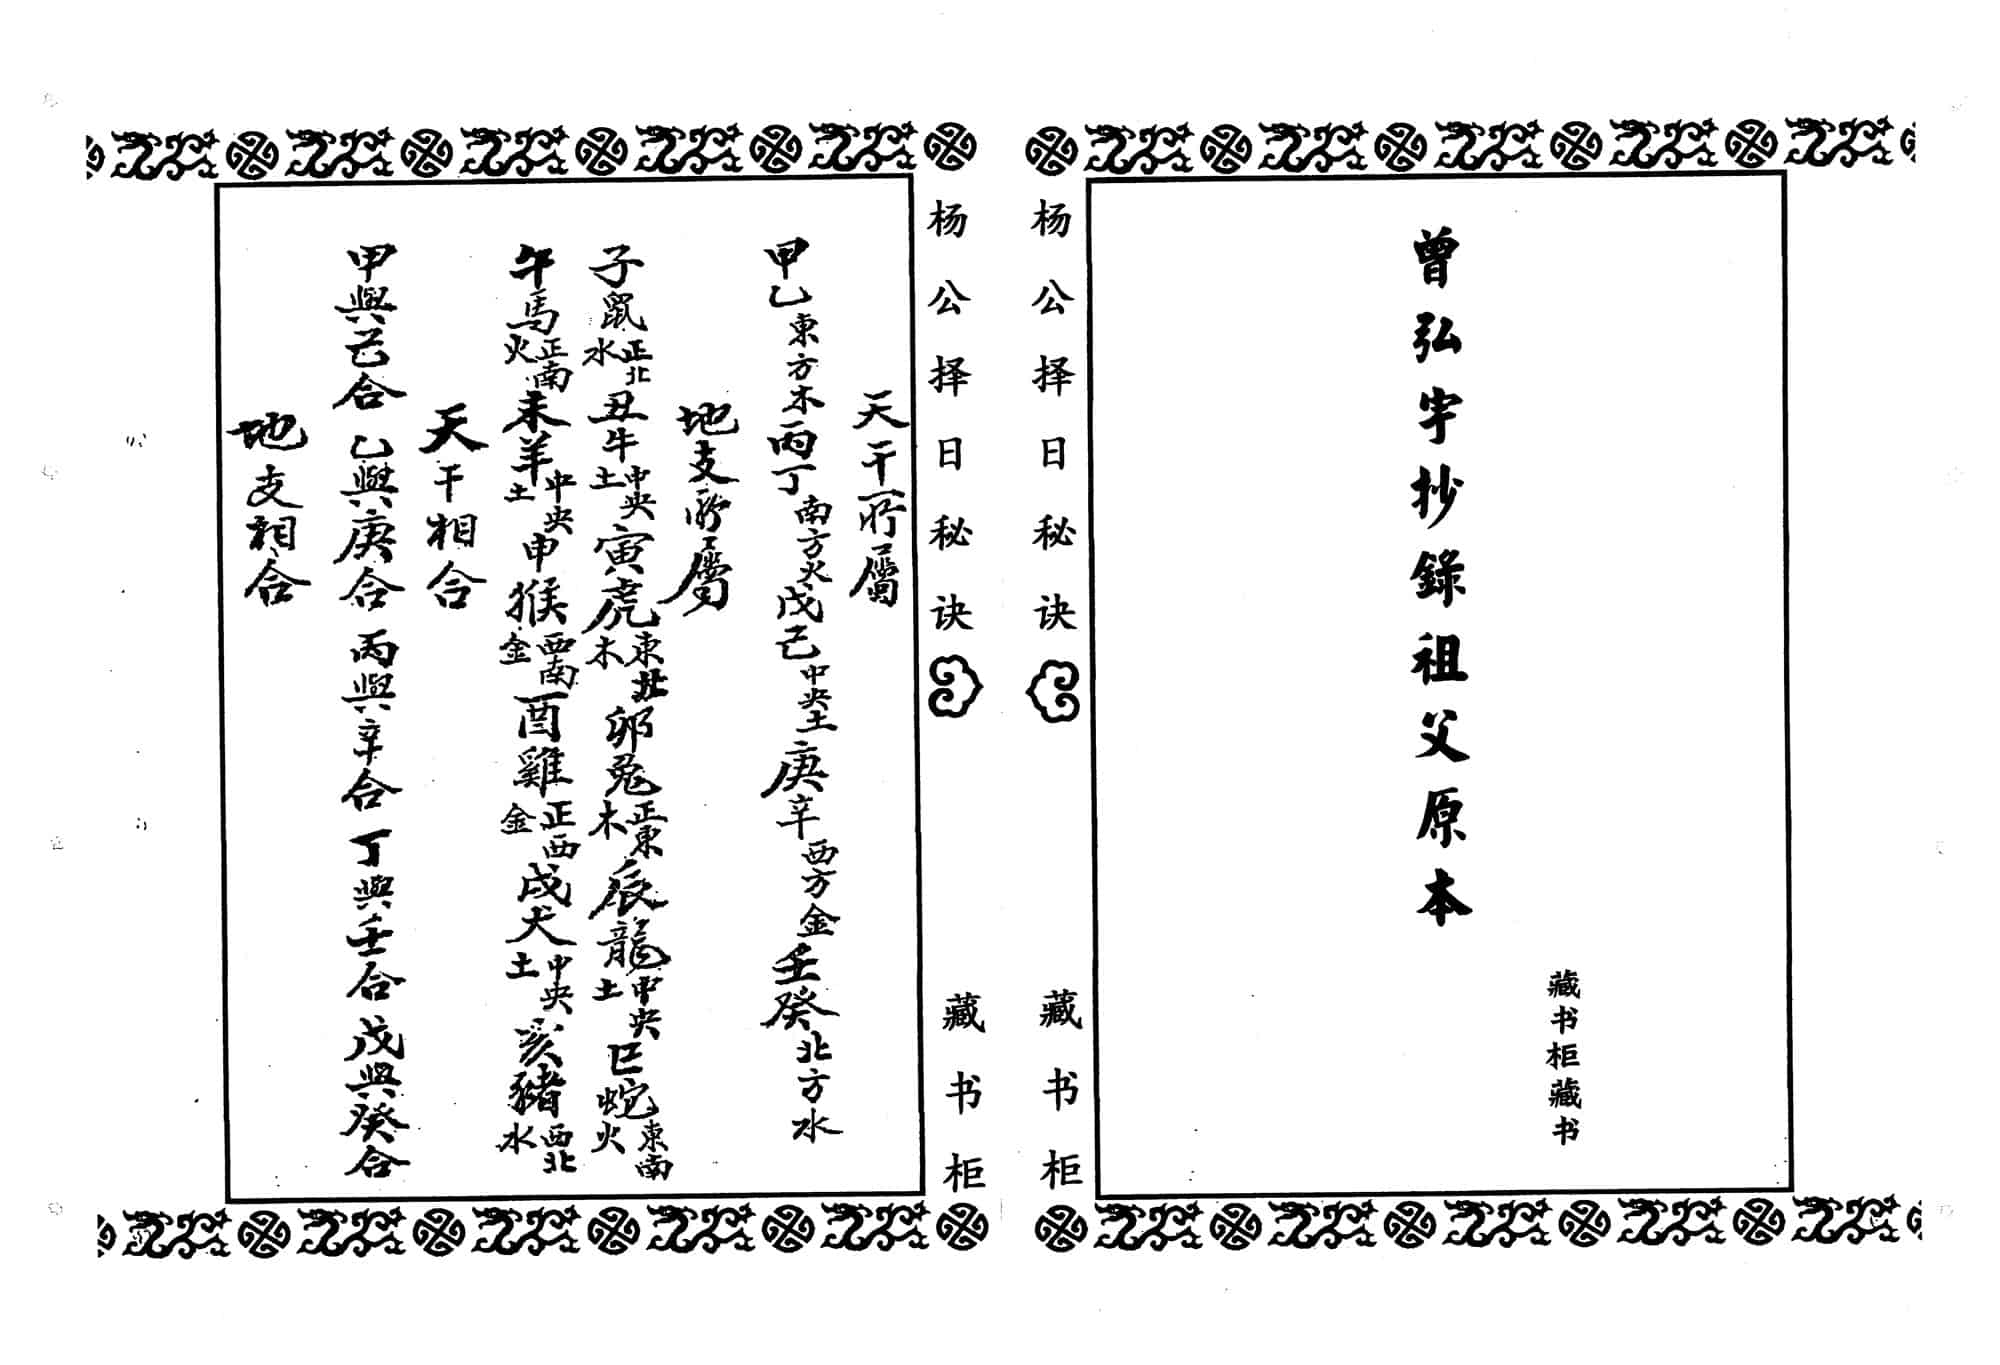 曾弘宇抄錄祖父原本
藏书柜藏书
杨公择日秘诀
藏书柜
杨公择日秘诀
藏书柜
天干所屬
甲乙東方木丙丁南方火戊己中央土庚辛西方金壬癸北方水
地支所屬
子鼠正北水丑牛中央土寅虎東北木卯兔正東木辰龍中央土巳蛇東南火
午馬正南火未羊中央土申猴西南金酉雞正西金戌犬中央土亥豬西北水
天干相合
甲與己合乙與庚合丙與辛合丁與壬合戊與癸合
地支相合